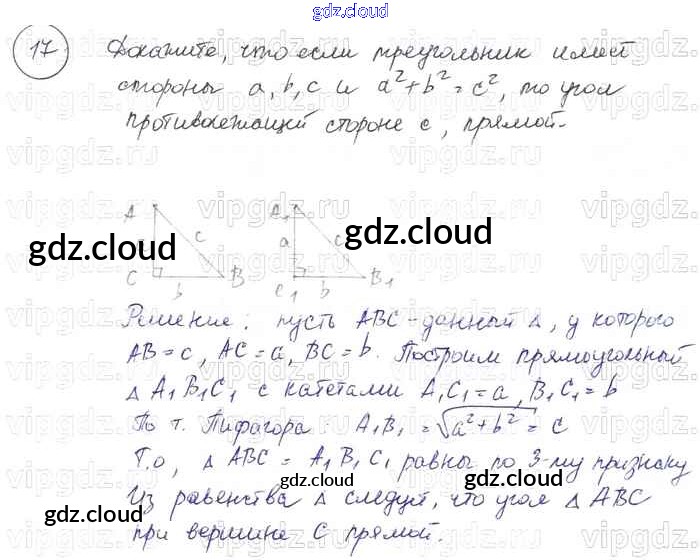 gdz.cloud
17. Докажите, что если треугольник имеет
стороны a, b, c и a² + b² = c², то угол
противолежащий стороне c, прямой.
A A₁
c a c
gdz.cloud gdz.cloud
C b B C₁ b B₁
Решение: пусть ABC - данный Δ, у которого
AB = c, AC = a, BC = b. Построим прямоугольный
Δ A₁B₁C₁ с катетами A₁C₁ = a, B₁C₁ = b
По т. Пифагора: A₁B₁ = √a² + b² = c
Т.о, Δ ABC = A₁B₁C₁ равны по 3-му признаку
Из равенства Δ следует, что угол Δ ABC
при вершине C прямой.
gdz.cloud gdz.cloud
gdz.cloud
vipgdz.ru